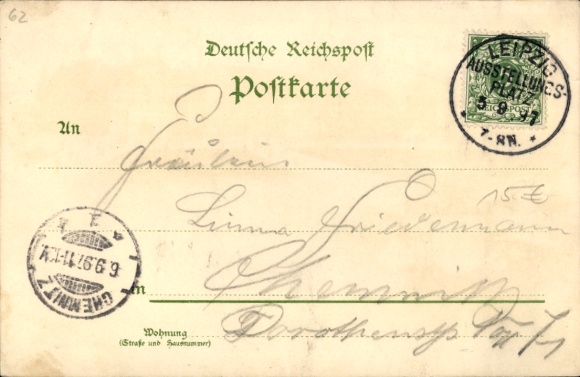 62
Deutsche Reichspost
Postkarte
LEIPZIG
AUSSTELLUNGS-
PLATZ
5 9 97
7-8N.
An
Fräulein
15.€
Linna Friedemann
CHEMNITZ
6.9.97.11-12V.
in Chemnitz
Wohnung
(Straße und Hausnummer)
Dorotheenstr